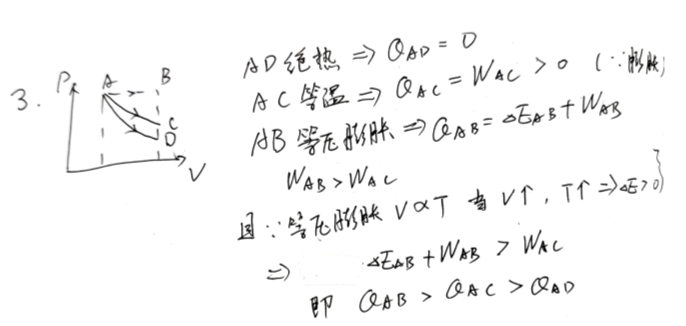 3.
P
A
B
C
D
V
AD绝热 ⇒ Q_AD = 0
AC等温 ⇒ Q_AC = W_AC > 0 (∵膨胀)
AB等压膨胀 ⇒ Q_AB = ΔE_AB + W_AB
W_AB > W_AC
∵等压膨胀 V∝T 当V↑, T↑ ⇒ ΔE>0}
⇒ ΔE_AB + W_AB > W_AC
即 Q_AB > Q_AC > Q_AD